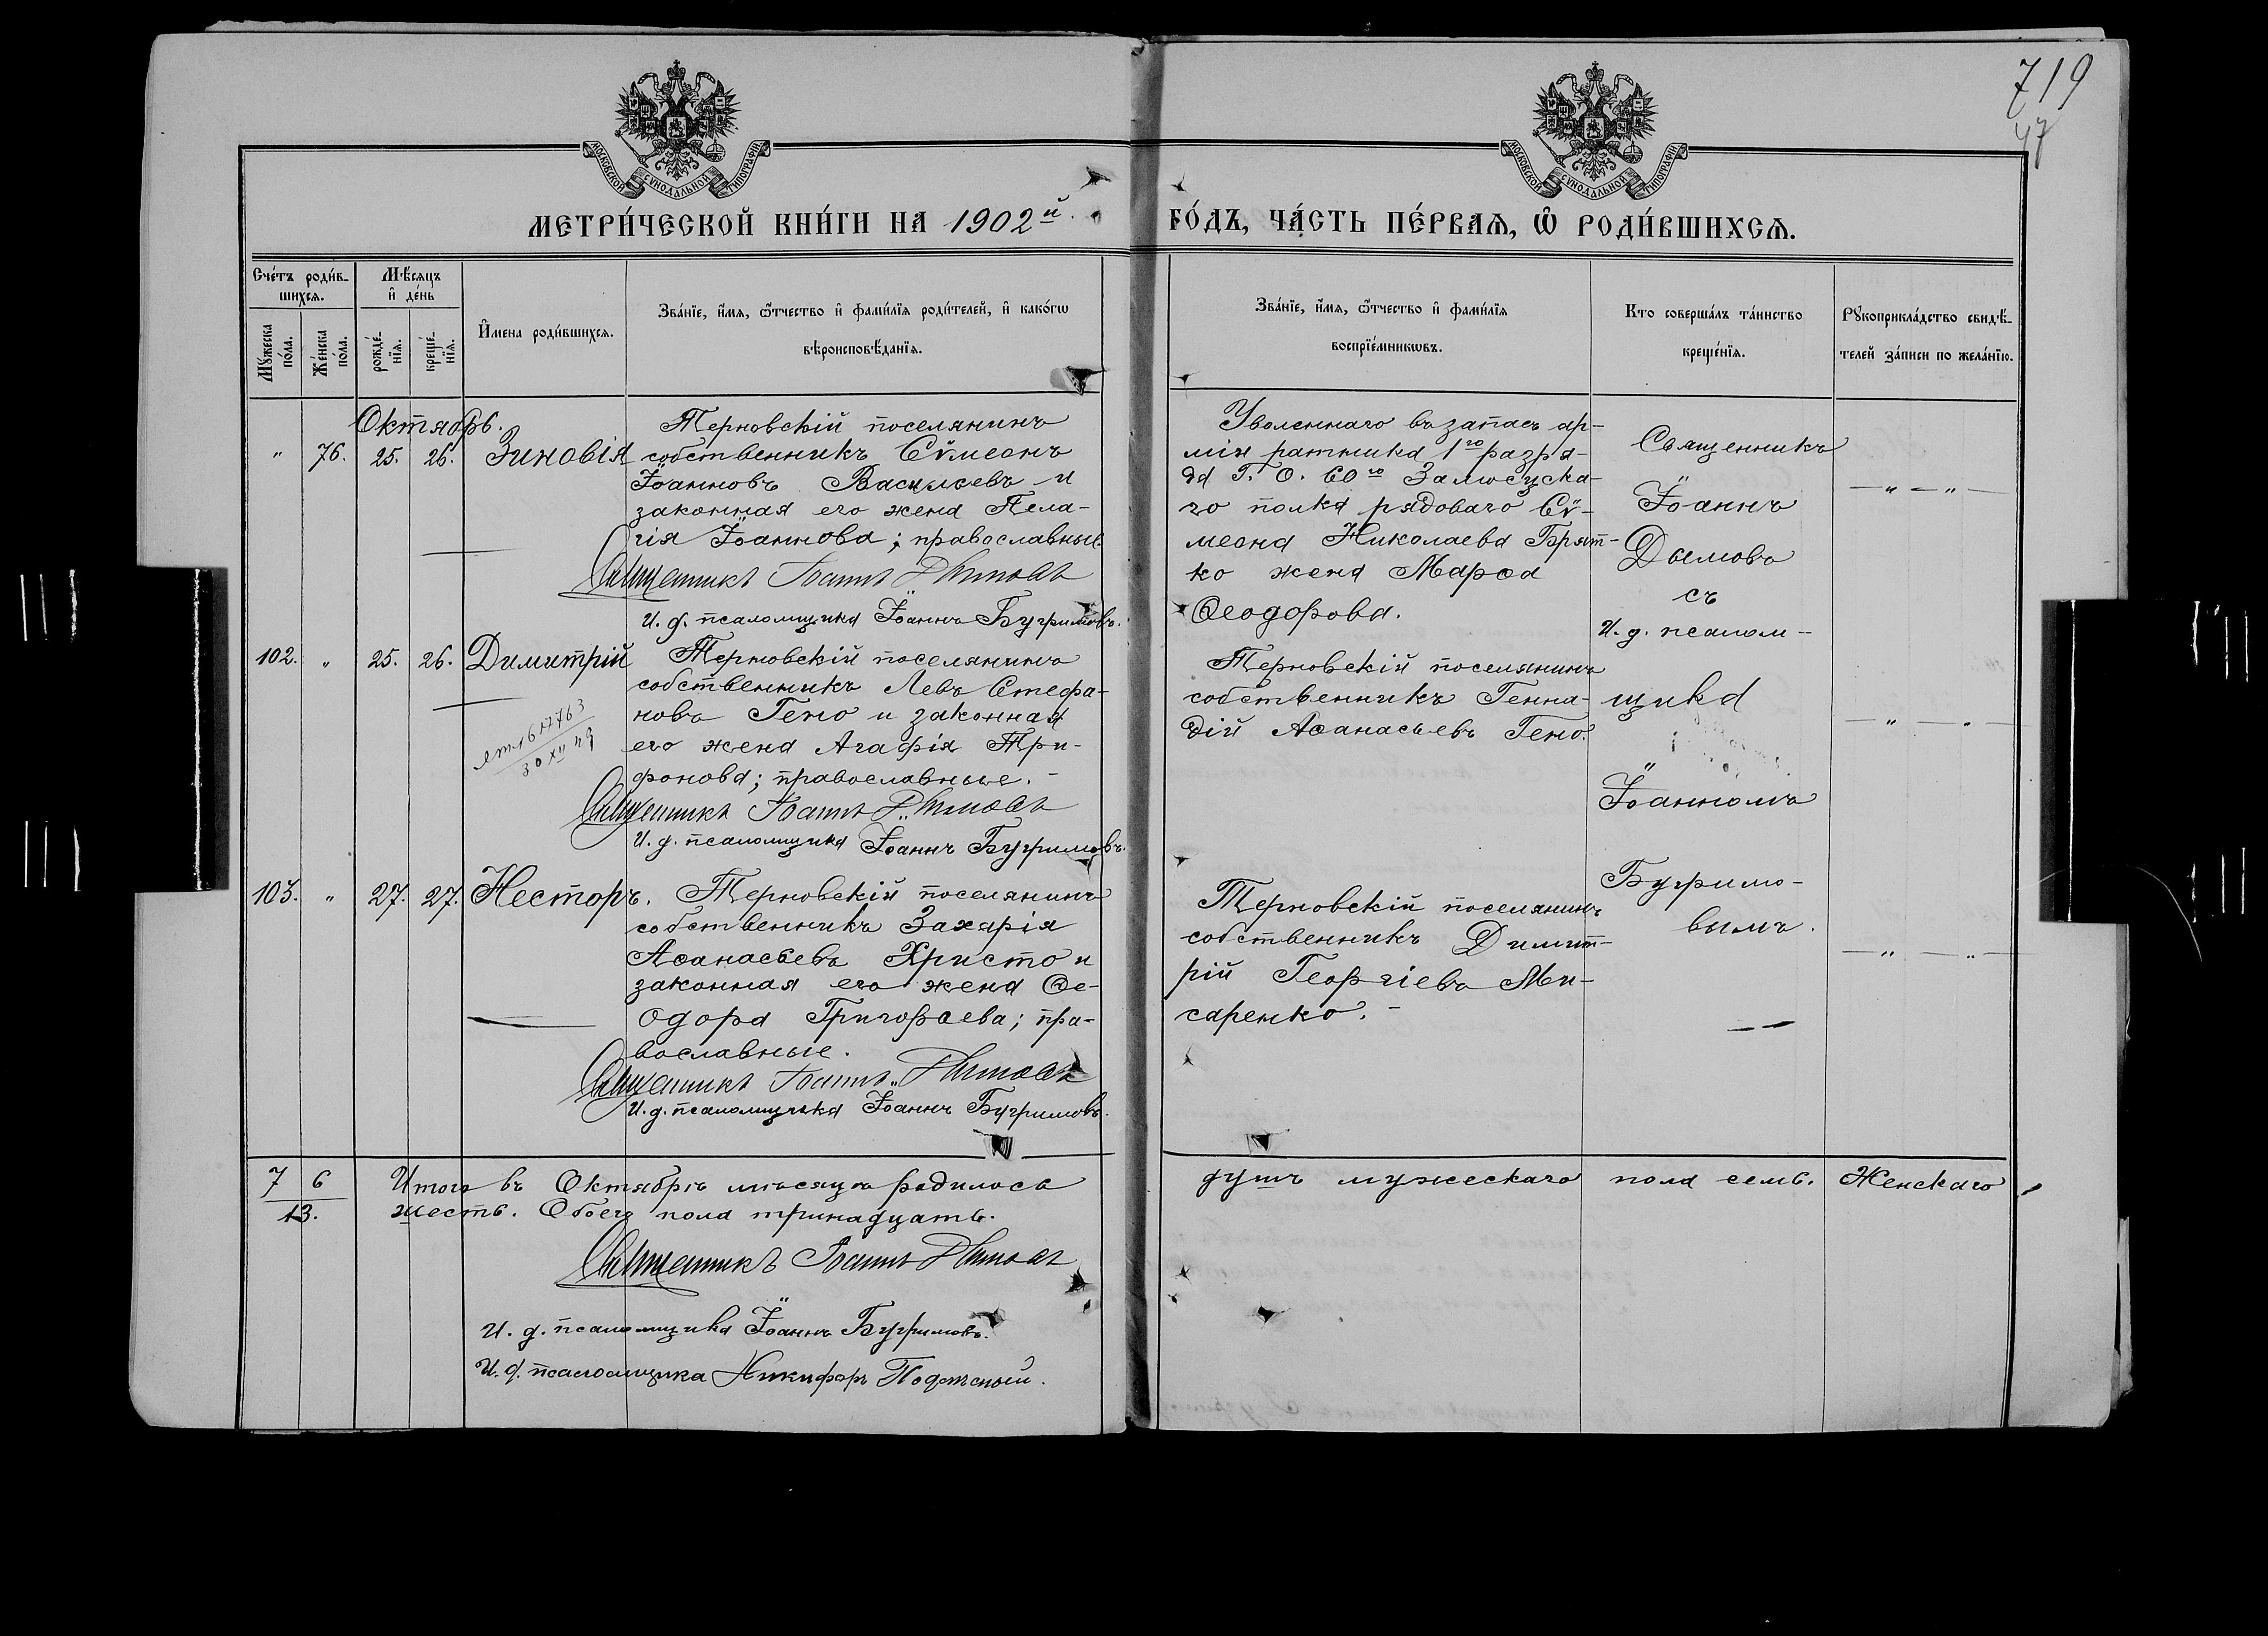 719
47
МОСКОВСКОЙ СѴНОДАЛЬНОЙ ТИПОГРАФІИ
МОСКОВСКОЙ СѴНОДАЛЬНОЙ ТИПОГРАФІИ
МЕТРИ́ЧЕСКОЙ КНИ́ГИ НА 1902й.
ГО́ДЪ, ЧА́СТЬ ПЕ́РВАѦ, Ѡ҆ РОДИ́ВШИХСѦ.
Сче́тъ роди́в-
шихсѧ.
Мѣ́сѧцъ
и҆ де́нь
Мꙋ́жеска
по́ла.
Же́нска
по́ла.
рожде́-
нїѧ.
креще́-
нїѧ.
И҆мена роди́вшихсѧ.
Зва́нїе, и҆́мѧ, ѻ҆́тчество и҆ фами́лїѧ роди́телей, и҆ како́гѡ
вѣроисповѣ́данїѧ.
Зва́нїе, и҆́мѧ, ѻ҆́тчество и҆ фами́лїѧ
воспрїе́мникѡвъ.
Кто̀ соверша́лъ та́инство
креще́нїѧ.
Рꙋкоприкла́дство свидѣ́-
телей за́писи по жела́нїю.
Октябрь.
" 76. 25. 26. Зиновія
Терновскій поселянинъ
собственникъ Сѵмеонъ
Іоанновъ Васильевъ и
законная его жена Пела-
гія Іоаннова; православные.
Священникъ Іоаннъ Дымовъ
И. д. псаломщика Іоаннъ Бугримовъ.
Уволеннаго въ запасъ ар-
міи ратника 1го разря-
да Г. О. 60го Замосцска-
го полка рядоваго Сѵ-
меона Николаева Брят-
ко жена Марѳа
Ѳеодорова.
Священникъ
Іоаннъ
Дымовъ
съ
И. д. псалом-
щика
Іоанномъ
Бугримо-
вымъ.
— " — " —
102. " 25. 26. Димитрій
30 XII 49
Терновскій поселянинъ
собственникъ Левъ Стефа-
новъ Гено и законная
его жена Агафія Три-
фонова; православные. -
Священникъ Іоаннъ Дымовъ
И. д. псаломщика Іоаннъ Бугримовъ.
Терновскій поселянинъ
собственникъ Генна-
дій Аѳанасьевъ Гено.
— " — " —
103. " 27. 27. Несторъ.
Терновскій поселянинъ
собственникъ Захарія
Аѳанасьевъ Христо и
законная его жена Ѳе-
одора Григорьева; пра-
вославные.
Священникъ Іоаннъ Дымовъ
И. д. псаломщика Іоаннъ Бугримовъ.
Терновскій поселянинъ
собственникъ Димит-
рій Георгіевъ Ми-
саренко. -
— " — " —
7 6
13.
Итого въ Октябрѣ мѣсяцѣ родилось
душъ мужескаго пола семь. Женскаго
шесть. Обоего пола тринадцать.
Священникъ Іоаннъ Дымовъ
И. д. псаломщика Іоаннъ Бугримовъ.
И. д. псаломщика Никифоръ